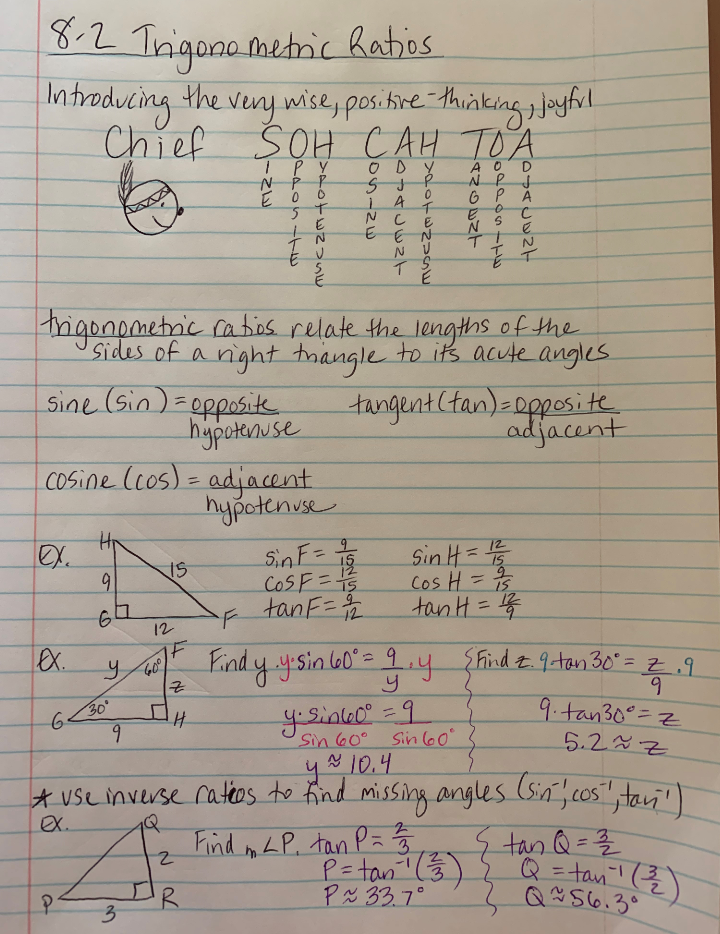 8-2 Trigonometric Ratios
Introducing the very wise, positive-thinking, joyful
Chief SOH CAH TOA
SINE OPPOSITE HYPOTENUSE COSINE ADJACENT HYPOTENUSE TANGENT OPPOSITE ADJACENT
trigonometric ratios relate the lengths of the
sides of a right triangle to its acute angles
sine (sin) = opposite/hypotenuse tangent (tan) = opposite/adjacent
cosine (cos) = adjacent/hypotenuse
Ex. H 9 15 G 12 F
sin F = 9/15 sin H = 12/15
cos F = 12/15 cos H = 9/15
tan F = 9/12 tan H = 12/9
Ex. y F 60° z G 30° 9 H
Find y. y·sin 60° = 9/y · y
y·sin 60°/sin 60° = 9/sin 60°
y ≈ 10.4
Find z. 9·tan 30° = z/9 · 9
9·tan 30° = z
5.2 ≈ z
* use inverse ratios to find missing angles (sin⁻¹, cos⁻¹, tan⁻¹)
Ex. Q 2 P 3 R
Find m∠P. tan P = 2/3
P = tan⁻¹(2/3)
P ≈ 33.7°
tan Q = 3/2
Q = tan⁻¹(3/2)
Q ≈ 56.3°